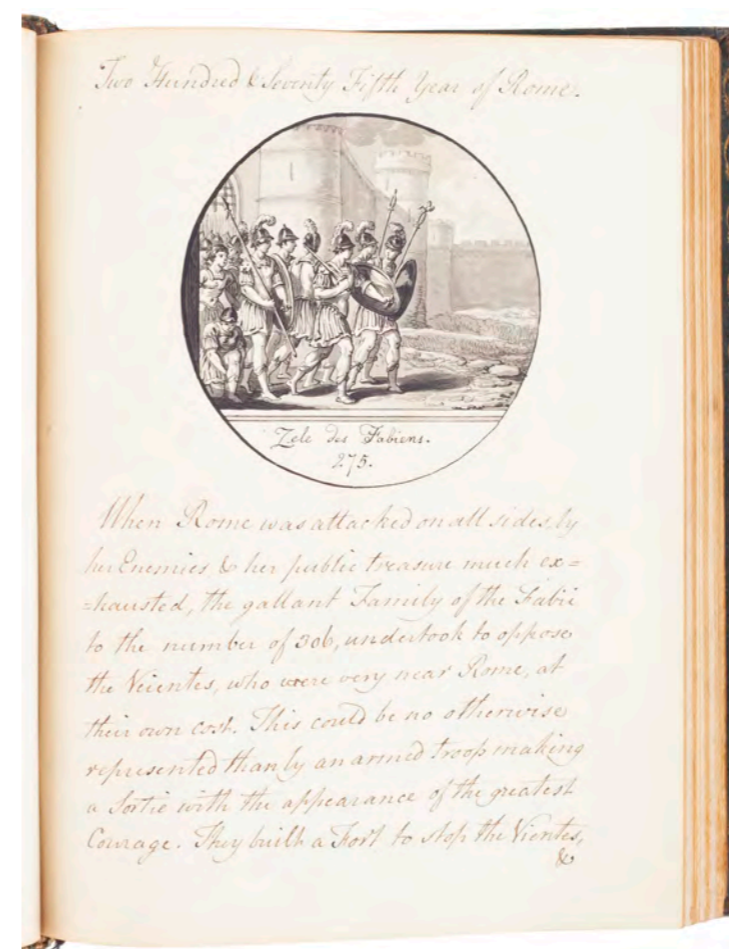 Two Hundred & Seventy Fifth Year of Rome.
Zele des Fabiens.
275.
When Rome was attacked on all sides, by
her Enemies, & her public treasure much ex=
=hausted, the gallant Family of the Fabii
to the number of 306, undertook to oppose
the Veientes, who were very near Rome, at
their own cost. This could be no otherwise
represented than by an armed troop making
a Sortie with the appearance of the greatest
Courage. They built a Fort to stop the Vientes,
&